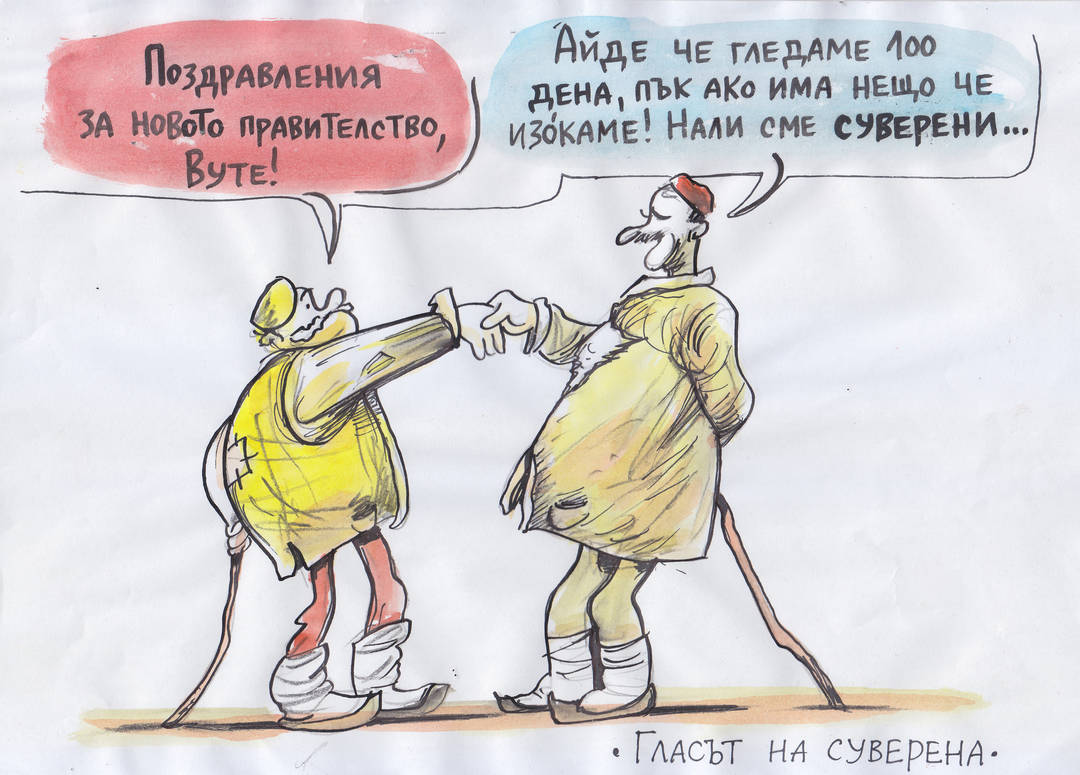 Поздравления
за новото правителство,
Вуте!
Айде че гледаме 100
дена, пък ако има нещо че
изóкаме! Нали сме суверени...
· Гласът на суверена ·